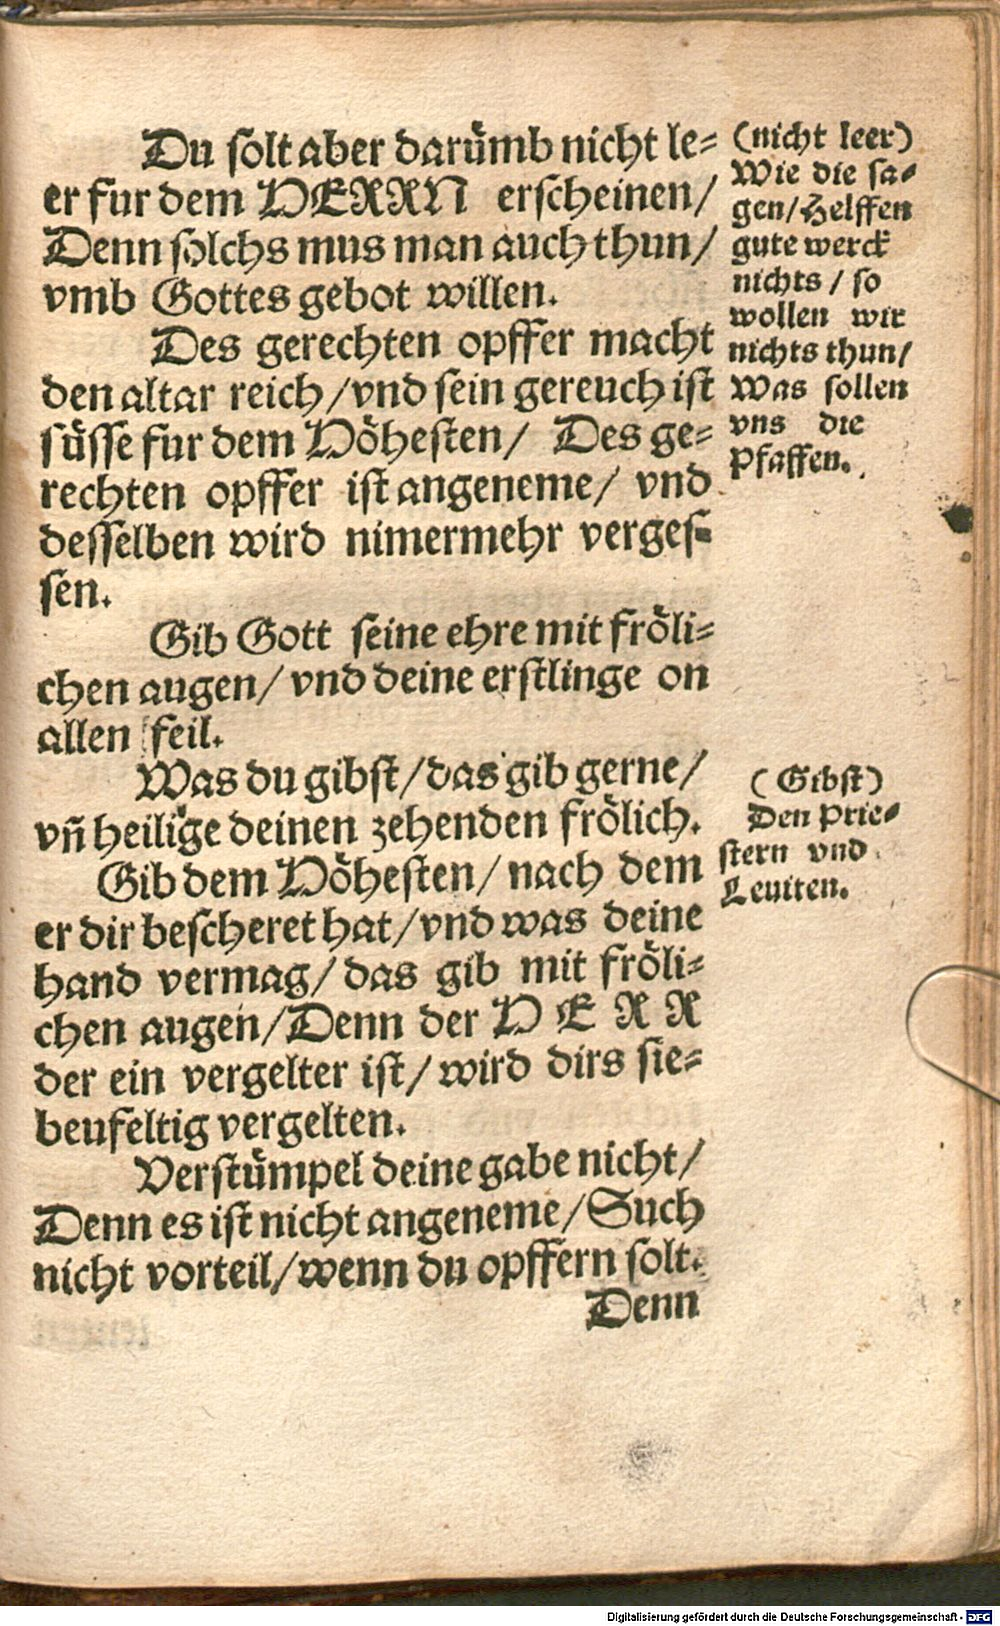 Du solt aber darumb nicht le=
er fur dem HERRN erscheinen/
Denn solchs mus man auch thun/
vmb Gottes gebot willen.
Des gerechten opffer macht
den altar reich/vnd sein gereuch ist
süsse fur dem Höhesten/ Des ge=
rechten opffer ist angeneme/ vnd
desselben wird nimermehr verges=
sen.
Gib Gott seine ehre mit fröli=
chen augen/vnd deine erstlinge on
allen feil.
Was du gibst/das gib gerne/
vñ heilige deinen zehenden frölich.
Gib dem Höhesten/nach dem
er dir bescheret hat/vnd was deine
hand vermag/das gib mit fröli=
chen augen/Denn der HERR
der ein vergelter ist/wird dirs sie=
beufeltig vergelten.
Verstümpel deine gabe nicht/
Denn es ist nicht angeneme/Such
nicht vorteil/wenn du opffern solt.
Denn
(nicht leer)
Wie die sa=
gen/Helffen
gute werck
nichts/so
wollen wir
nichts thun/
Was sollen
vns die
Pfaffen.
(Gibst)
Den Prie=
stern vnd
Leuiten.
Digitalisierung gefördert durch die Deutsche Forschungsgemeinschaft - DFG